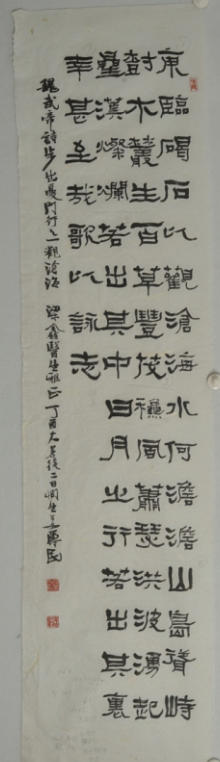 東臨碣石以觀滄海水何澹澹山島竦峙
樹木叢生百草豐茂穐風蕭瑟洪波湧起
星漢燦爛若出其中日月之行若出其裏
幸甚至哉歌以詠志
魏武帝詩步出夏門行之一觀滄海 梁鑫醫生雅正 丁酉大暑後二日